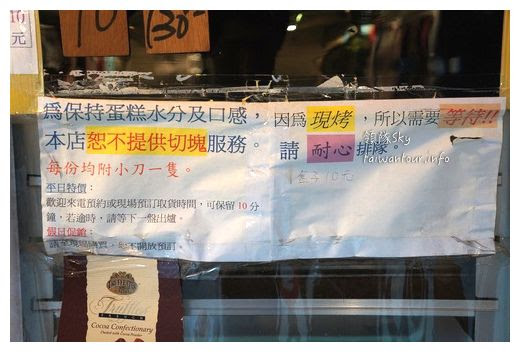 10
元
10
130
為保持蛋糕水分及口感，
本店恕不提供切塊服務。
每份均附小刀一隻。
平日特價：
歡迎來電預約或現場預訂取貨時間，可保留10分
鐘，若逾時，請等下一盤出爐。
假日促銷：
請至現場購買，恕不開放預訂。
因為現烤，所以需要等待!!
請耐心排隊。
1盒子10元
領隊Sky
taiwantour.info
Truffles
Cocoa Confectionary
Dusted with Cocoa Powder